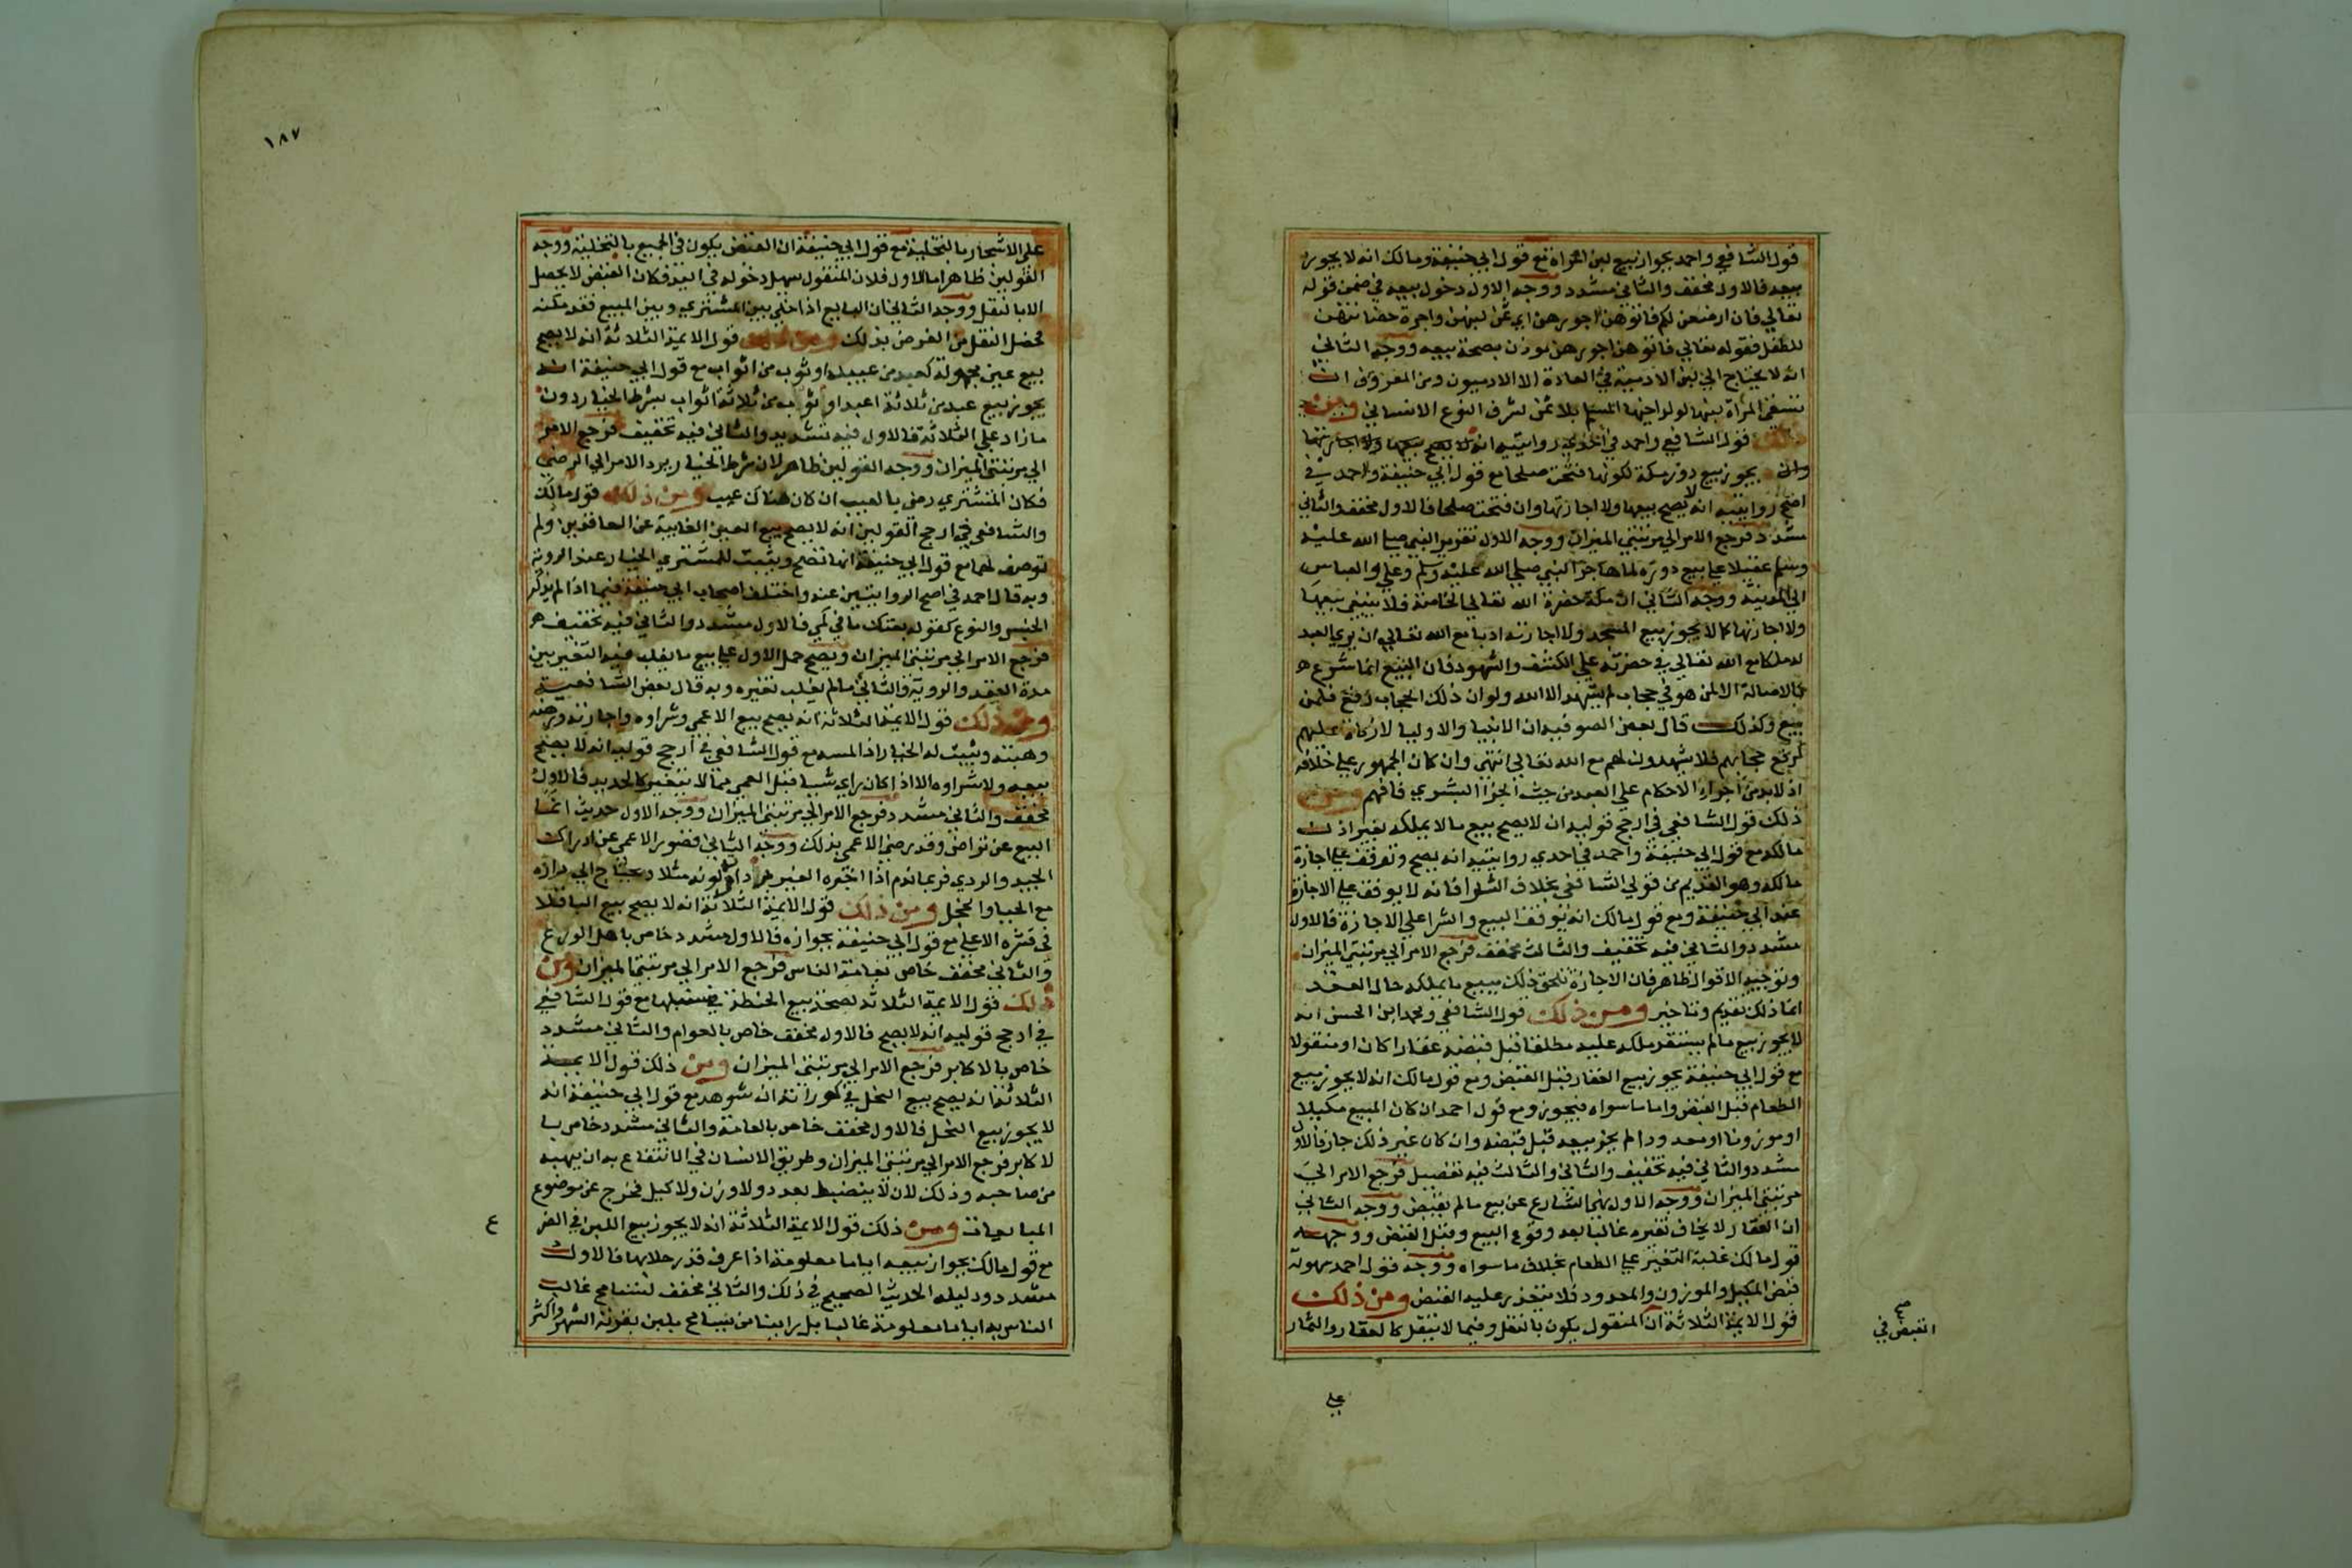 قول الشافعي واحمد بجواز بيع لبن المراة مع قول ابي حنيفة ومالك انه لا يجوز
بيعه فالاول مخفف والثاني مشدد ووجه الاول دخول بيعه في ضمن قوله
تعالي فان ارضعن لكم فاتوهن اجورهن اي ثمن لبنهن واجرة حضانتهن
للطفل فقوله تعالي فاتوهن اجورهن يوذن بصحة بيعه ووجه الثاني
انه لا يحتاج الي لبن الادمية في العادة الا الادميون ومن المعروف ان
تسقي المرأة لبنها لولد اختها المسلم بلا ثمن لشرف النوع الانساني ومن
ذلك قول الشافعي واحمد في احدي روايتيه انه لا يصح بيعها ولا اجارتها
وان يجوز بيع دور مكة لكونها فتحت صلحا مع قول ابي حنيفة واحمد في
اصح روايتيه انه لا يصح بيعها ولا اجارتها وان فتحت صلحا فالاول مخفف والثاني
مشدد فرجع الامر الي مرتبتي الميزان ووجه الاول تقرير النبي صلي الله عليه
وسلم عقيلا علي بيع دوره لما هاجر النبي صلي الله عليه وسلم وعلي والعباس
الي المدينة ووجه الثاني ان مكة حضرة الله تعالي الخاصة فلا ينبغي بيعها
ولا اجارتها كما لا يجوز بيع المسجد ولا اجارته ادبا مع الله تعالي ان يري العبد
له ملكا مع الله تعالي في حضرته علي الكشف والشهود فان البيع انما شرع
بالاصالة الا لمن هو في حجاب لم يشهد الا الله ولو ان ذلك الحجاب رفع فلمن
يبيع وكذلك قال بعض الصوفيه ان الانبيا والاوليا لا زكاة عليهم
لرفع حجابهم فلا يشهدون لهم مع الله تعالي انتهي وان كان الجمهور علي خلافه
اذ لا بد من اجراء الاحكام علي العبد من حيث الجزا البشري فافهم ومن
ذلك قول الشافعي في ارجح قوليه ان لا يصح بيع ما لا يملكه بغير اذن
مالكه مع قول ابي حنيفة واحمد في احدي روايتيه انه يصح وتوقف علي اجازة
مالكه وهو القديم من قولي الشافعي بخلاف الشرا فانه لا يوقف علي الاجازة
عند ابي حنيفة ومع قول مالك انه يوقف البيع والشرا علي الاجازة فالاول
مشدد والثاني فيه تخفيف والثالث مخفف فرجع الامر الي مرتبتي الميزان
وتوجيه الاقوال ظاهر فان الاجازة تلحق ذلك ببيع ما يملكه حال العقد
انما ذلك تقديم وتاخير ومن ذلك قول الشافعي ومحمد ابن الحسن انه
لا يجوز بيع مالم يستقر ملكه عليه مطلقا قبل قبضه عقارا كان او منقولا
مع قول ابي حنيفة يجوز بيع العقار قبل القبض ومع قول مالك انه لا يجوز بيع
الطعام قبل القبض واما ما سواه فيجوز ومع قول احمد ان كان المبيع مكيلا
او موزونا او معدودا لم يجز بيعه قبل قبضه وان كان غير ذلك جاز فالاول
مشدد والثاني فيه تخفيف والثاني والثالث فيه تفصيل فرجع الامر الي
مرتبتي الميزان ووجه الاول نهي الشارع عن بيع مالم يقبض ووجه الثاني
ان العقار لا يخاف تغيره غالبا بعد وقوع البيع وقبل القبض ووجه
قول مالك غلبة التغير علي الطعام بخلاف ما سواه ووجه قول احمد سهولة
قبض المكيل والموزون والمعدود فلا يتعذر عليه القبض ومن ذلك
قول الايمة الثلاثة ان المنقول يكون بالنقل وفيما لا ينقل كالعقار والثمار
صح
القبض في
علي
١٨٧
علي الاشجار بالتخلية مع قول ابي حنيفة ان القبض يكون في الجميع بالتخلية ووجه
القولين ظاهر اما الاول فلان المنقول سهل دخوله في اليد فكان القبض لا يحصل
الا بالنقل ووجه الثاني ان البايع اذا خلي بين المشتري وبين المبيع فقد مكنه
فحصل النقل من الغرض بذلك ومن ذلك قول الايمة الثلاثة انه لا يصح
بيع عين مجهولة كعبد من عبيده او ثوب من اثواب مع قول ابي حنيفة انه
يجوز بيع عبد من ثلاثة اعبد او ثوب من ثلاثة اثواب بشرط الخيار دون
ما زاد علي الثلاثة فالاول فيه تشديد والثاني فيه تخفيف فرجع الامر
الي مرتبتي الميزان ووجه القولين ظاهر لان شرط الخيار يرد الامر الي الرضي
فكان المشتري رضي بالعيب ان كان هناك عيب ومن ذلك قول مالك
والشافعي في ارجح القولين انه لا يصح بيع العين الغايبة عن العاقدين ولم
توصف لهما مع قول ابي حنيفة انها تصح ويثبت للمشتري الخيار عند الروية
وبه قال احمد في اصح الروايتين عنه واختلف اصحاب ابي حنيفة فيما اذا لم يذكر
الجنس والنوع كقوله بعتك ما في كمي فالاول مشدد والثاني فيه تخفيف
فرجع الامر الي مرتبتي الميزان ويصح حمل الاول علي بيع ما يغلب فيه التغير بين
مدة العقد والروية والثاني مالم يغلب تغيره وبه قال بعض الشافعية
ومن ذلك قول الايمة الثلاثة انه يصح بيع الاعمي وشراوه واجارته ورهنه
وهبته ويثبت له الخيار اذا لمسه مع قول الشافعي في ارجح قوليه انه لا يصح
بيعه ولا شراوه الا اذا كان راي شيا قبل العمي مما لا يتغير كالحديد فالاول
مخفف والثاني مشدد فرجع الامر الي مرتبتي الميزان ووجه الاول حديث انما
البيع عن تراض وقد رضي الاعمي بذلك ووجه الثاني قصور الاعمي عن ادراك
الجيد والردي فربما ندم اذا اخبره الغير برداة لونه مثلا ويحتاج الي رده
مع الحيا والخجل ومن ذلك قول الايمة الثلاثة انه لا يصح بيع الباقلا
في قشره الاعلي مع قول ابي حنيفة بجوازه فالاول مشدد خاص باهل الورع
والثاني مخفف خاص بعامة الناس فرجع الامر الي مرتبتي الميزان ومن
ذلك قول الايمة الثلاثة بصحة بيع الحنطة في سنبلها مع قول الشافعي
في ارجح قوليه انه لا يصح فالاول مخفف خاص بالعوام والثاني مشدد
خاص بالاكابر فرجع الامر الي مرتبتي الميزان ومن ذلك قول الايمة
الثلاثة انه يصح بيع النحل في كوراته ان شوهد مع قول ابي حنيفة انه
لا يجوز بيع النحل فالاول مخفف خاص بالعامة والثاني مشدد خاص با
لاكابر فرجع الامر الي مرتبتي الميزان وطريق الانسان في الانتفاع به ان يهبه
من صاحبه وذلك لان لا ينضبط بعدد ولا وزن ولا كيل فخرج عن موضوع
المبايعات ومن ذلك قول الايمة الثلاثة انه لا يجوز بيع اللبن في الضر
ع
مع قول مالك بجواز بيعه اياما معلومة اذا عرف قدر حلابها فالاول
مشدد ودليله الحديث الصحيح في ذلك والثاني مخفف لتسامح غالب
الناس به اياما معلومة غالبا بل راينا من يتسامح بلبن بقرته الشهر واكثر